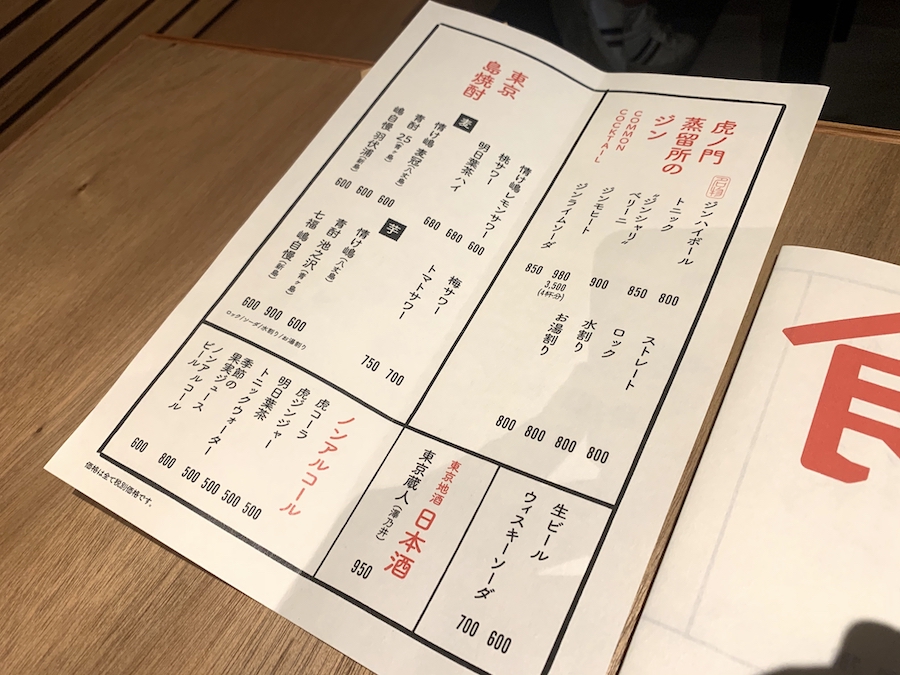 虎ノ門
蒸留所の
ジン
COMMON
COCKTAIL
名物
ジンハイボール 800
トニック 850
“ジンシャリ”
ベリーニ 900
ジンモヒート 980
3,500
(4杯分)
ジンライムソーダ 850
ストレート 800
ロック 800
水割り 800
お湯割り 800
東京
島焼酎
情け嶋レモンサワー 600
桃サワー 680
明日葉茶ハイ 680
梅サワー 700
トマトサワー 750
麦
情け嶋 麦冠(八丈島) 600
青酎 25(青ヶ島) 600
嶋自慢 羽伏浦(新島) 600
芋
情け嶋(八丈島) 600
青酎 池之沢(青ヶ島) 900
七福 嶋自慢(新島) 600
ロック/ソーダ/水割り/お湯割り
生ビール 600
ウィスキーソーダ 700
東京地酒
日本酒
東京蔵人(澤乃井) 950
ノンアルコール
虎コーラ 500
虎ジンジャー 500
明日葉茶 500
トニックウォーター 500
季節の
果実ジュース 800
ノンアルコール
ビール 600
価格は全て税別価格です。
食